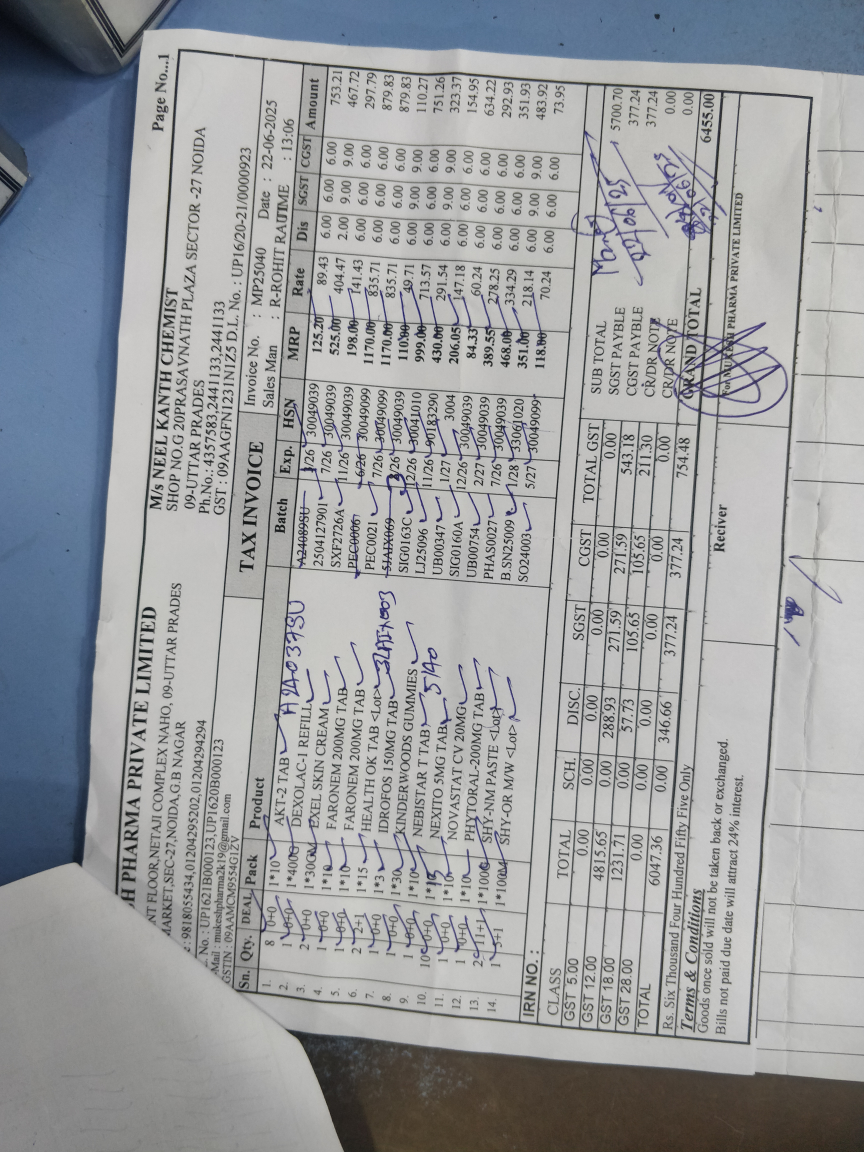 H PHARMA PRIVATE LIMITED
NT FLOOR,NETAJI COMPLEX NAHO, 09-UTTAR PRADES
MARKET,SEC-27,NOIDA,G.B NAGAR
: 9818055434,01204295202,01204294294
No. : UP1621B000123,UP1620B000123
-Mail : mukeshpharma2k19@gmail.com
GSTIN : 09AAMCM9554G1ZV
Page No...1
M/s NEEL KANTH CHEMIST
SHOP NO.G 20PRASAVNATH PLAZA SECTOR -27 NOIDA
09-UTTAR PRADES
Ph.No.: 4357583,2441133,2441133
GST : 09AAGFN1231N1Z5 D.L. No. : UP16/20-21/0000923
TAX INVOICE
Invoice No. : MP25040 Date : 22-06-2025
Sales Man : R-ROHIT RAUTIME : 13:06
Sn. Qty. DEAL Pack Product Batch Exp. HSN MRP Rate Dis SGST CGST Amount
1. 8 0+0 1*10 AKT-2 TAB A24089SU 3/26 30049039 125.20 89.43 6.00 6.00 6.00 753.21
A24037SU
2. 1 0+0 1*400G DEXOLAC-1 REFILL 2504127901 7/26 30049039 525.00 404.47 2.00 9.00 9.00 467.72
3. 2 0+0 1*30GM EXEL SKIN CREAM SXF2726A 11/26 30049039 198.00 141.43 6.00 6.00 6.00 297.79
4. 1 0+0 1*10 FARONEM 200MG TAB PEC0006 6/26 30049099 1170.00 835.71 6.00 6.00 6.00 879.83
5. 1 0+0 1*10 FARONEM 200MG TAB PEC0021 7/26 30049099 1170.00 835.71 6.00 6.00 6.00 879.83
6. 2 2+1 1*15 HEALTH OK TAB <Lot> 30049039 110.00 49.71 6.00 9.00 9.00 110.27
7. 1 0+0 1*3 IDROFOS 150MG TAB SIG0163C 12/26 30041010 999.00 713.57 6.00 6.00 6.00 751.26
8. 1 0+0 1*30 KINDERWOODS GUMMIES LJ25096 11/26 90183290 430.00 291.54 6.00 9.00 9.00 323.37
9. 1 0+0 1*10 NEBISTAR T TAB UB00347 1/27 3004 206.05 147.18 6.00 6.00 6.00 154.95
5/40
10. 10 0+0 NEXITO 5MG TAB SIG0160A 12/26 30049039 84.33 60.24 6.00 6.00 6.00 634.22
11. 1 0+0 1*10 NOVASTAT CV 20MG UB00754 2/27 30049039 389.55 278.25 6.00 6.00 6.00 292.93
12. 1 0+0 1*10 PHYTORAL-200MG TAB PHAS0027 7/26 30049039 468.00 334.29 6.00 6.00 6.00 351.93
13. 2 11+1 1*100G SHY-NM PASTE <Lot> B.SN25009 1/28 33061020 351.00 218.14 6.00 9.00 9.00 483.92
14. 1 5+1 1*100M SHY-OR M/W <Lot> SO24003 5/27 30049099 118.00 70.24 6.00 6.00 6.00 73.95
IRN NO. :
CLASS TOTAL SCH. DISC. SGST CGST TOTAL GST
GST 5.00 0.00 0.00 0.00 0.00 0.00 0.00
GST 12.00 4815.65 0.00 288.93 271.59 271.59 543.18
GST 18.00 1231.71 0.00 57.73 105.65 105.65 211.30
GST 28.00 0.00 0.00 0.00 0.00 0.00 0.00
TOTAL 6047.36 0.00 346.66 377.24 377.24 754.48
SUB TOTAL 5700.70
SGST PAYBLE 377.24
CGST PAYBLE 377.24
CR/DR NOTE 0.00
CR/DR NOTE 0.00
GRAND TOTAL 6455.00
22/06/25
Rs. Six Thousand Four Hundred Fifty Five Only
Terms & Conditions
Goods once sold will not be taken back or exchanged.
Bills not paid due date will attract 24% interest.
Reciver
For MUKESH PHARMA PRIVATE LIMITED